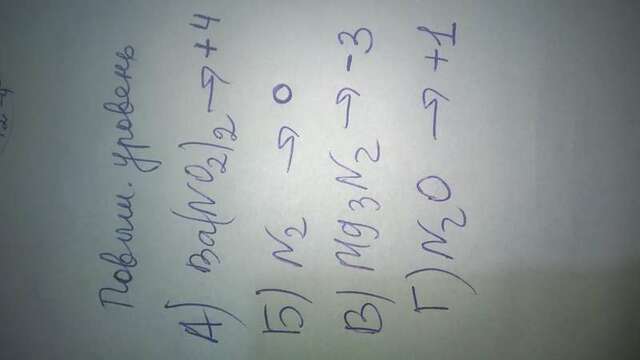 Повыш. уровень
А) Ba(NO2)2 → +4
Б) N2 → 0
В) Mg3N2 → -3
Г) N2O → +1